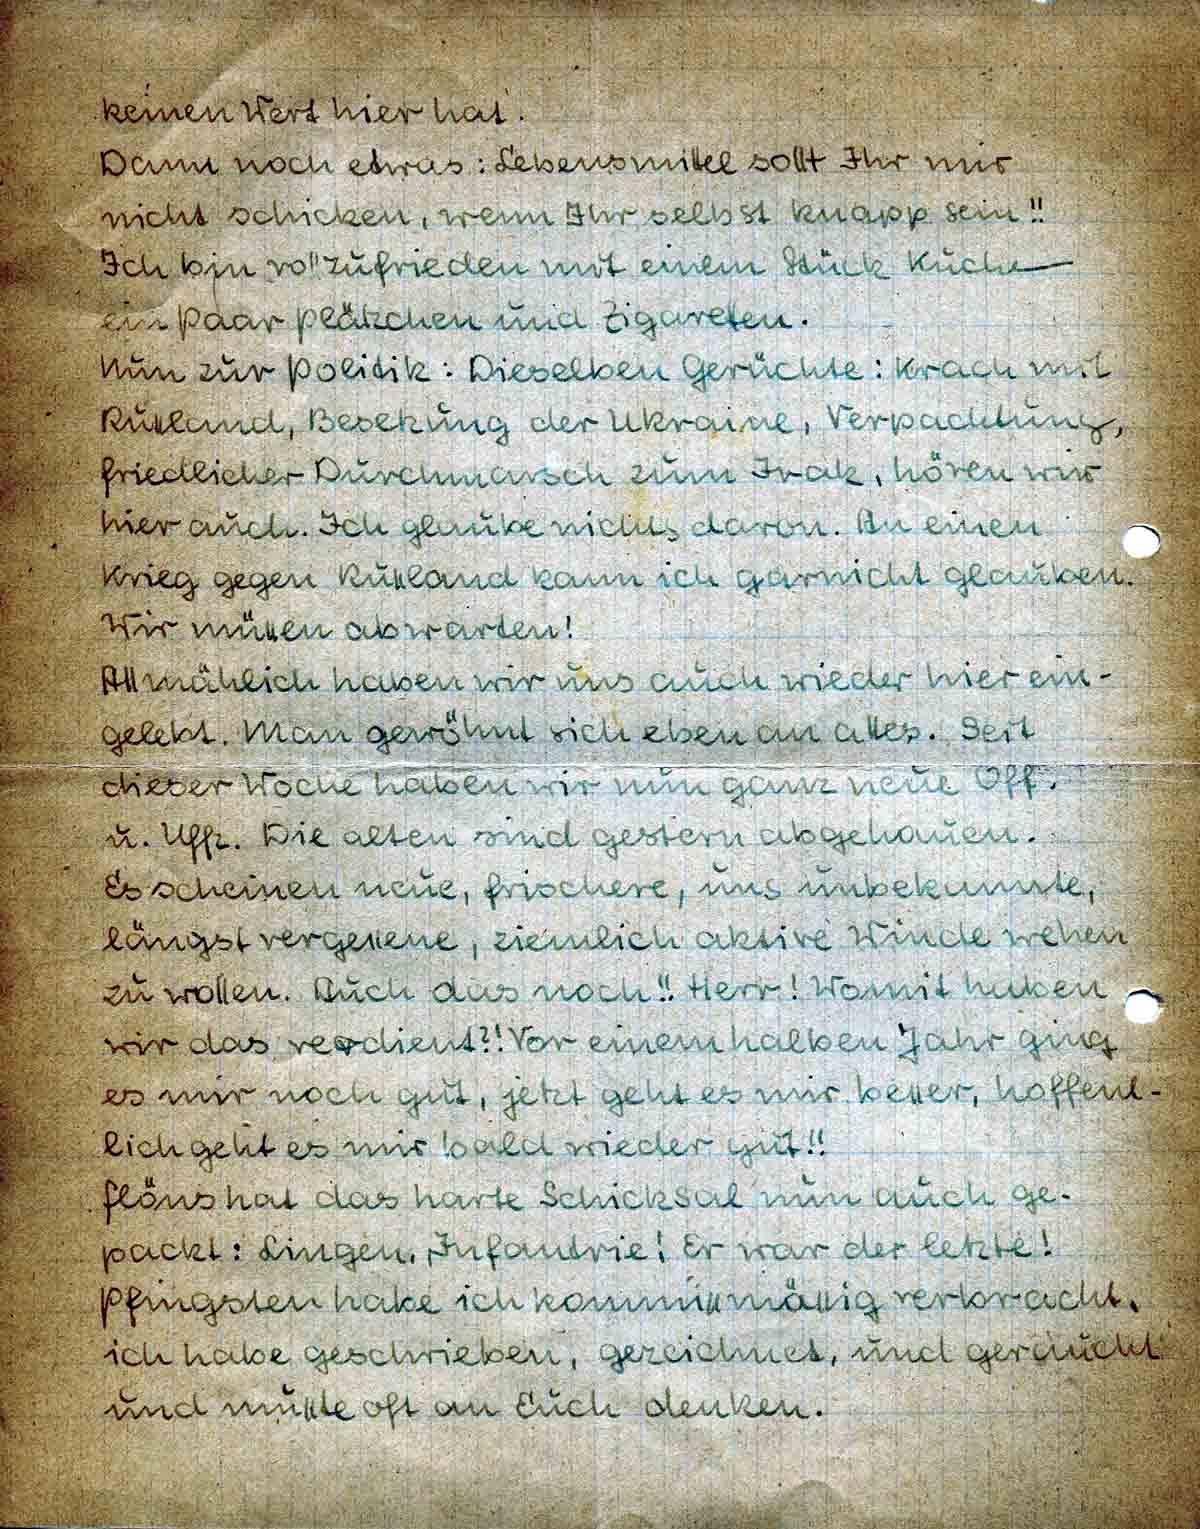 keinen Wert hier hat.
Dann noch etwas: Lebensmittel sollt Ihr mir
nicht schicken, wenn Ihr selbst knapp sein!!
Ich bin vollzufrieden mit einem Stück Kuche
ein paar Plätzchen und Zigaretten.
Nun zur Politik: Dieselben Gerüchte: Krach mit
Rußland, Besetzung der Ukraine, Verpachtung,
friedlicher Durchmarsch zum Irak, hören wir
hier auch. Ich glaube nichts davon. An einen
Krieg gegen Rußland kann ich garnicht glauben.
Wir müssen abwarten!
Allmählich haben wir uns auch wieder hier ein-
gelebt. Man gewöhnt sich eben an alles. Seit
dieser Woche haben wir nun ganz neue Off.
u. Uffz. Die alten sind gestern abgehauen.
Es scheinen neue, frischere, uns unbekannte,
längst vergessene, ziemlich aktive Winde wehen
zu wollen. Auch das noch!! Herr! Womit haben
wir das verdient?! Vor einem halben Jahr ging
es mir noch gut, jetzt geht es mir besser, hoffent-
lich geht es mir bald wieder gut!!
Flöns hat das harte Schicksal nun auch ge-
packt: Lingen, Infantrie! Er war der letzte!
Pfingsten habe ich kommißmäßig verbracht,
ich habe geschrieben, gezeichnet, und geraucht
und mußte oft an Euch denken.